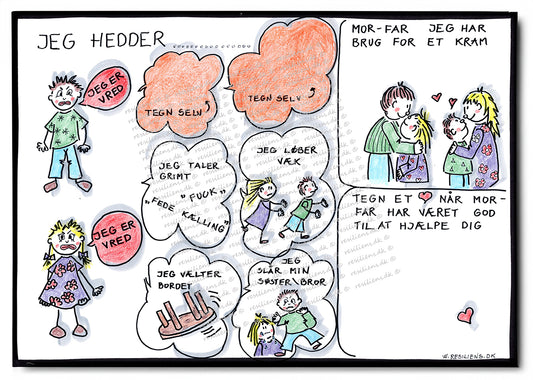 JEG HEDDER
JEG ER
VRED
TEGN SELV
TEGN SELV
JEG TALER
GRIMT
"FUCK"
"FEDE KÆLLING"
JEG LØBER
VÆK
JEG ER
VRED
JEG VÆLTER
BORDET
JEG
SLÅR MIN
SØSTER\BROR
resiliens.dk ©
MOR-FAR JEG HAR
BRUG FOR ET KRAM
TEGN ET ❤ NÅR MOR-
FAR HAR VÆRET GOD
TIL AT HJÆLPE DIG
W.RESILIENS.DK